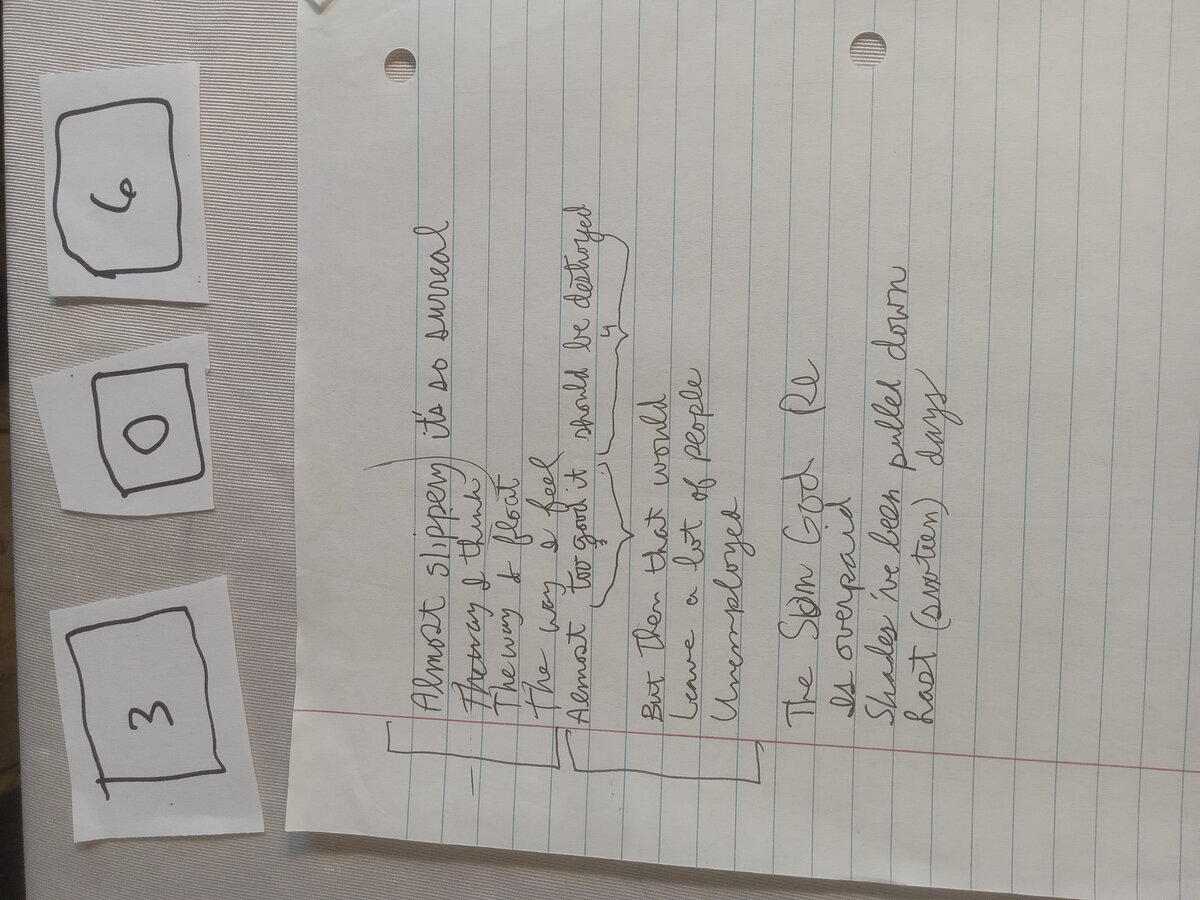 3
0
6
Almost slippery it's so surreal
The way I think
The way I float
The way I feel
Almost too good it should be destroyed
3
4
But Then that would
Leave a lot of people
Unemployed
The Sun God Re
Is overpaid
Shades i've been pulled down
Last (sixteen) days